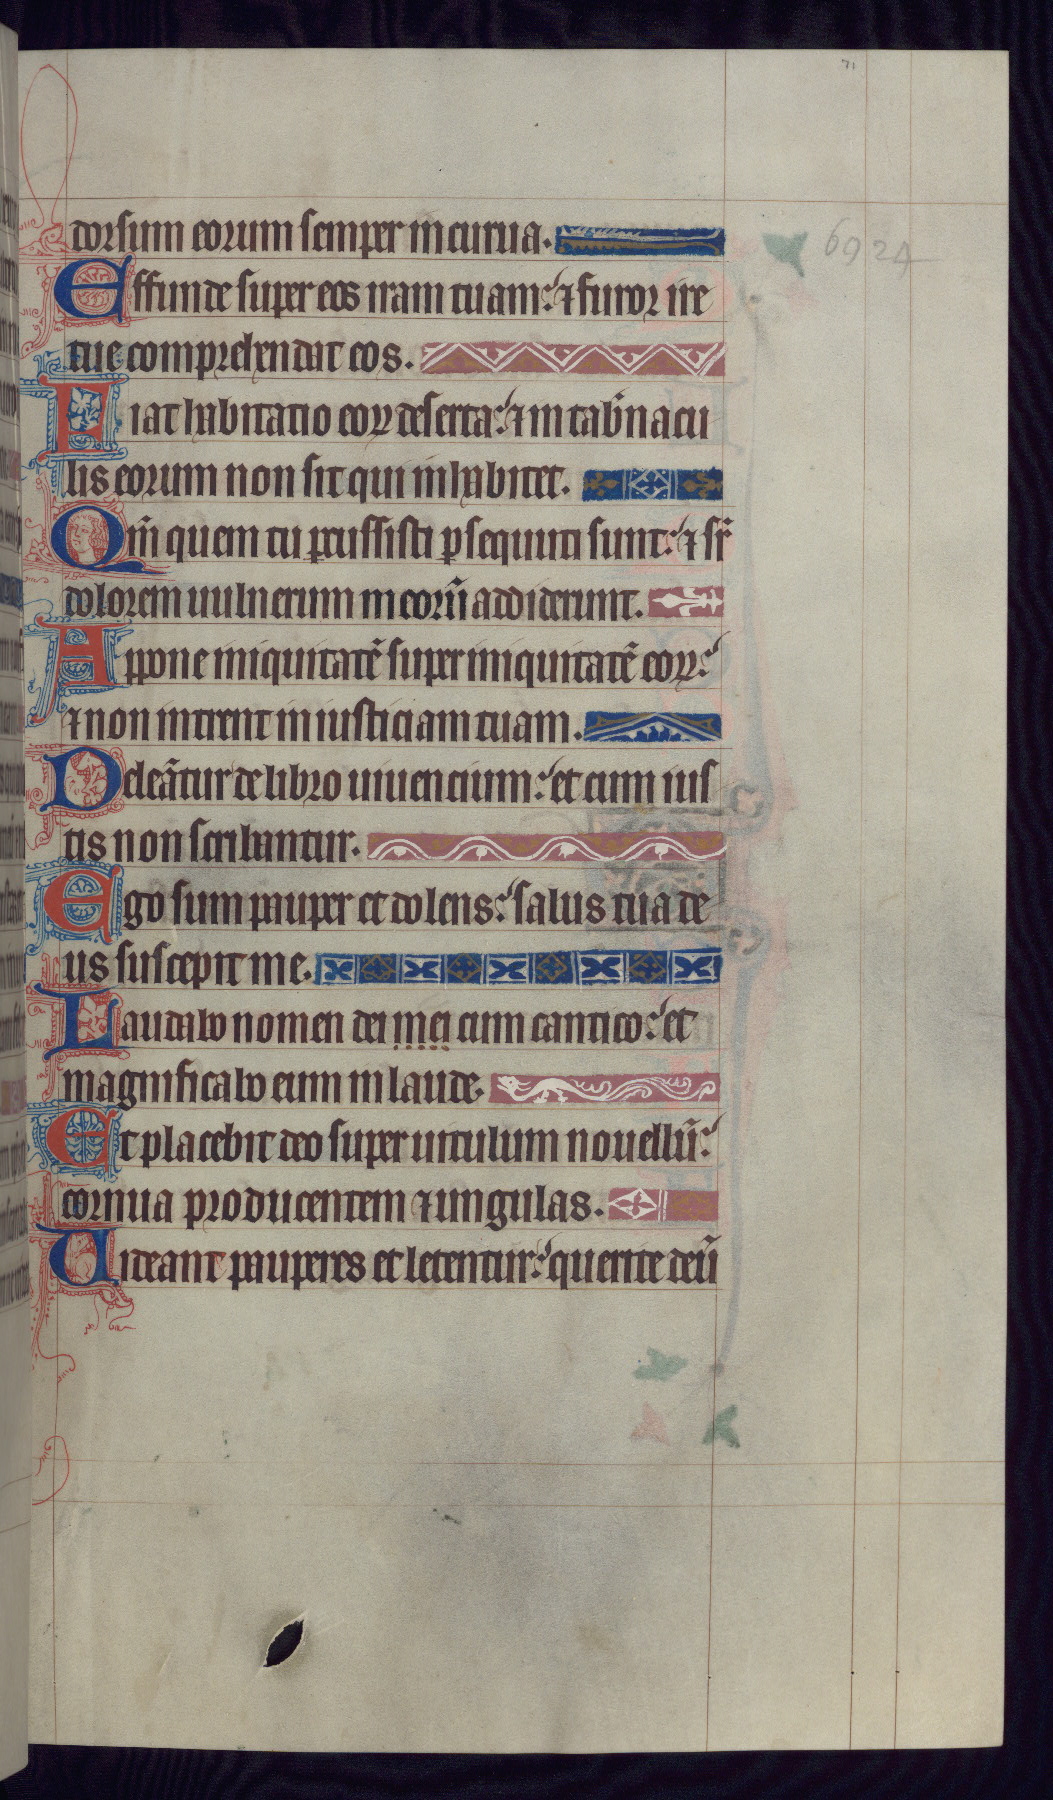 71
69 24
dorsum eorum semper incurua.
Effunde super eos iram tuam: ⁊ furor ire
tue comprehendat eos.
Fiat habitatio eoꝝ deserta: ⁊ in tab̄nacu
lis eorum non sit qui inhabitet.
Qm̄ quem tu ꝑcussisti ꝑsequuti sunt: ⁊ sr̄
dolorem uulnerum meorū addiderunt.
Appone iniquitatē super iniquitatē eoꝝ:
⁊ non intrent in iusticiam tuam.
Deleātur de libro uiuencium: et cum ius
tis non scribantur.
Ego sum pauper et dolens: salus tua de
us suscepit me.
Laudabo nomen dei mei cum cantico: et
magnificabo eum in laude.
Et placebit deo super uitulum nouellū:
cornua producentem ⁊ ungulas.
Uideant pauperes et letentur: querite deū